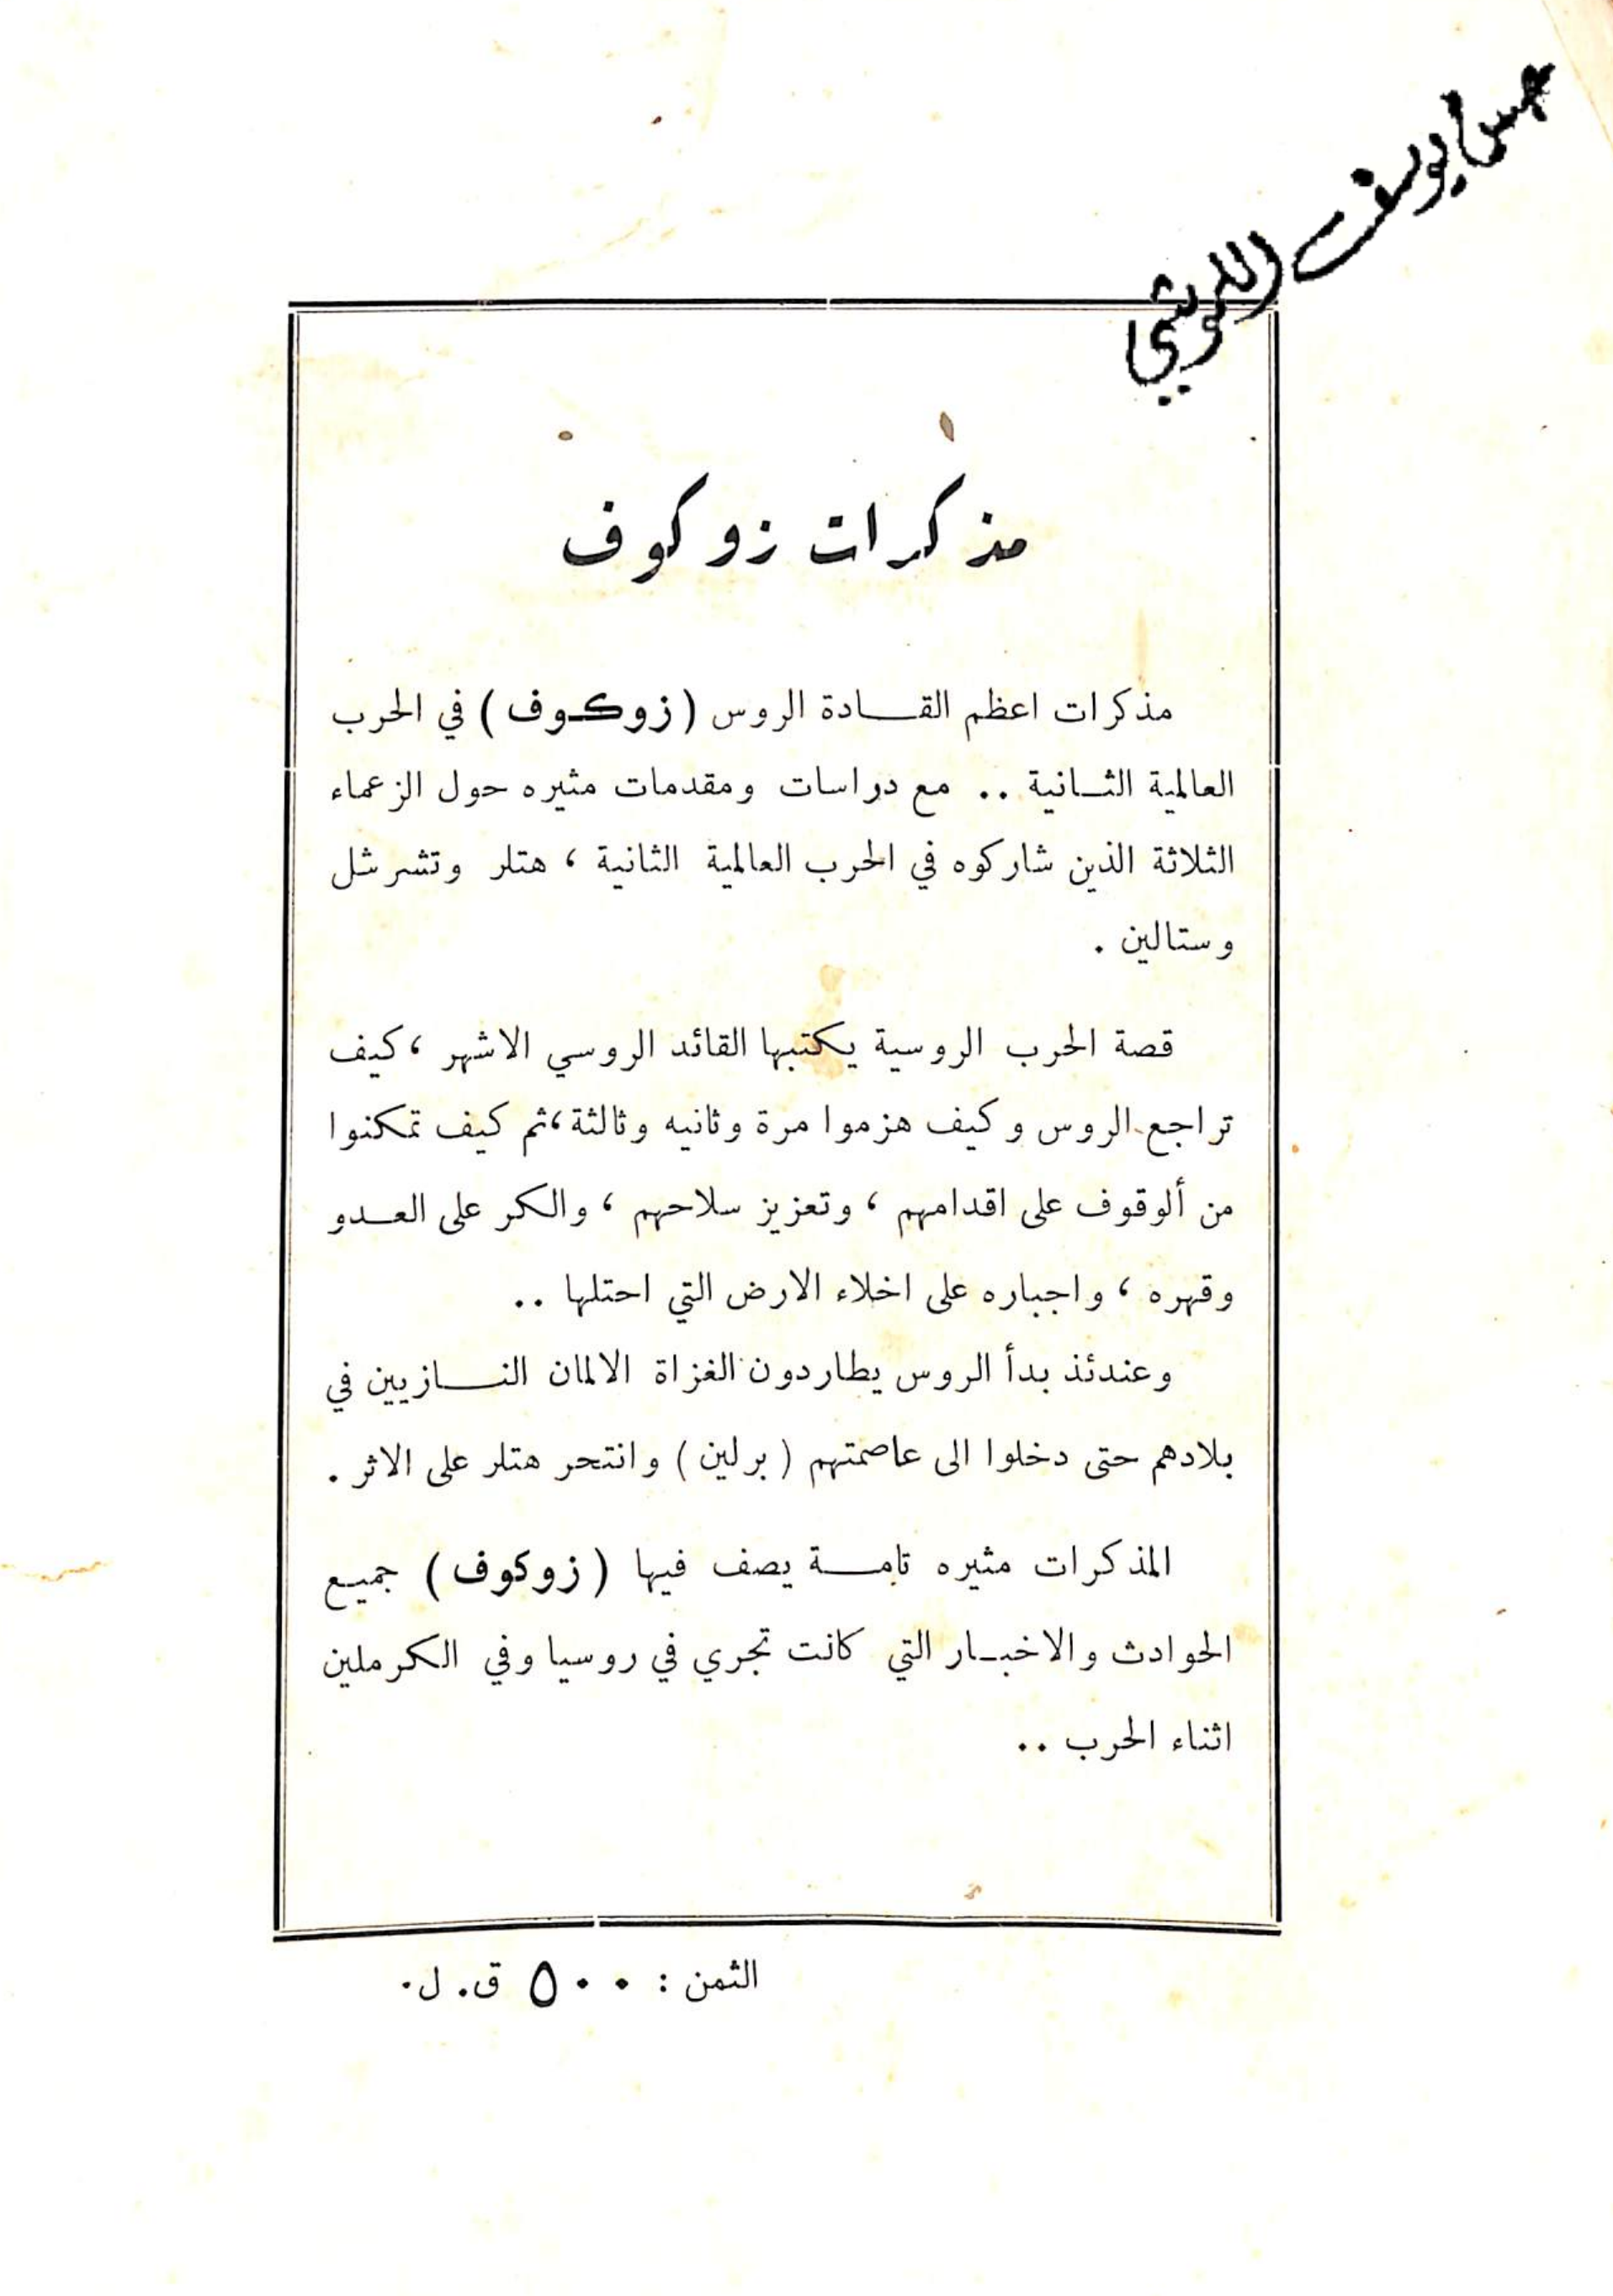 حسن يوسف
مذكرات زوكوف
مذكرات اعظم القادة الروس (زوكوف) في الحرب
العالمية الثانية .. مع دراسات ومقدمات مثيره حول الزعماء
الثلاثة الذين شاركوه في الحرب العالمية الثانية ، هتلر وتشرشل
وستالين .
قصة الحرب الروسية يكتبها القائد الروسي الاشهر ، كيف
تراجع الروس وكيف هزموا مرة وثانيه وثالثة ، ثم كيف تمكنوا
من ألوقوف على اقدامهم ، وتعزيز سلاحهم ، والكر على العدو
وقهره ، واجباره على اخلاء الارض التي احتلها ..
وعندئذ بدأ الروس يطاردون الغزاة الالمان النازيين في
بلادهم حتى دخلوا الى عاصمتهم ( برلين ) وانتحر هتلر على الاثر .
المذكرات مثيره تامة يصف فيها (زوكوف) جميع
الحوادث والاخبار التي كانت تجري في روسيا وفي الكرملين
اثناء الحرب ..
الثمن : ٥٠٠ ق. ل.